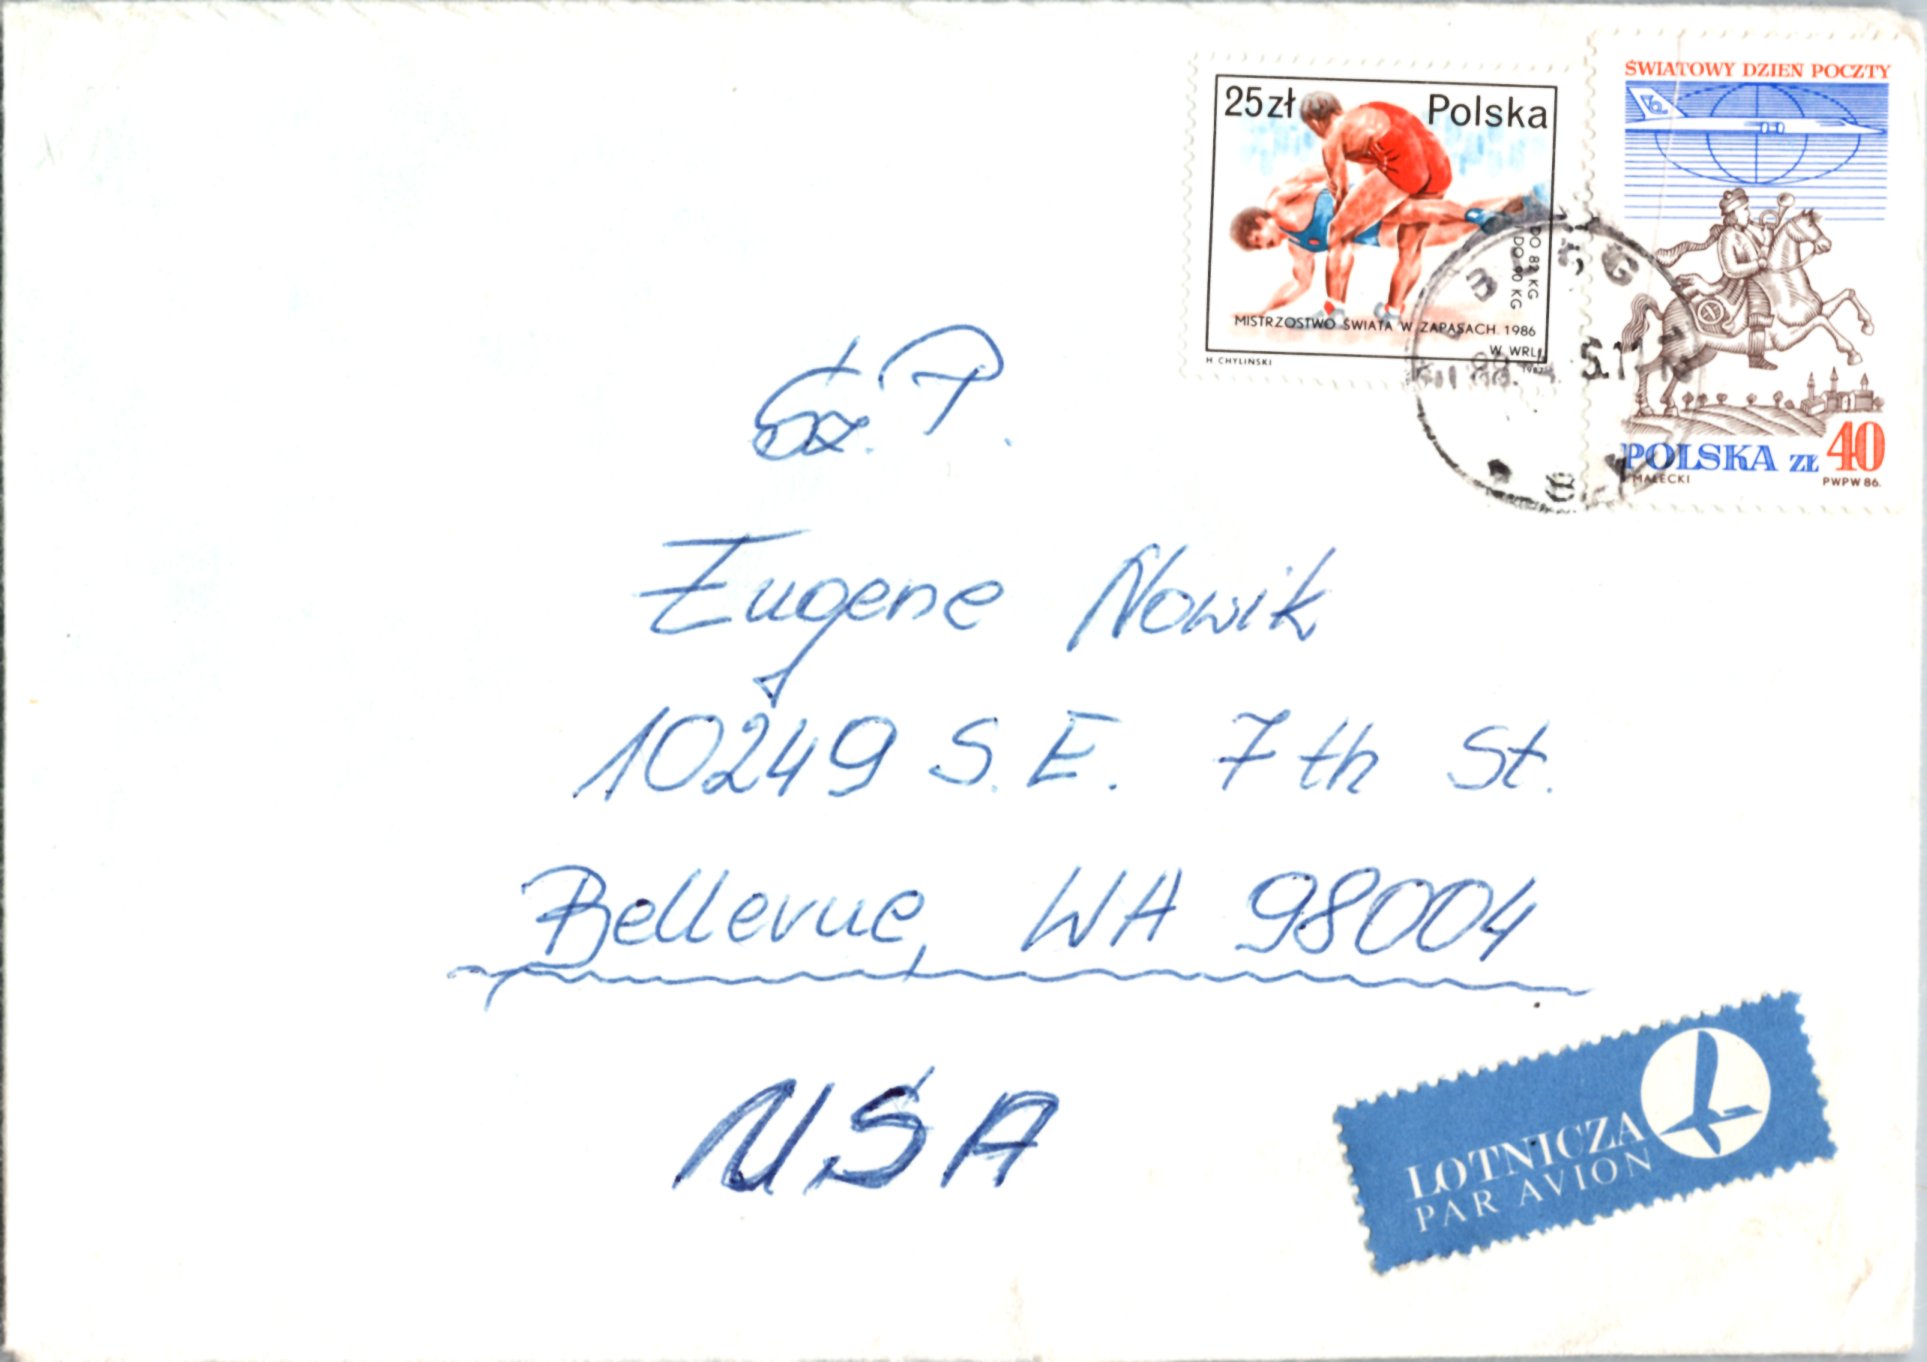 25zł Polska
DO 82 KG
DO 90 KG
MISTRZOSTWO ŚWIATA W ZAPASACH. 1986
W WRL
H. CHYLIŃSKI 1987
ŚWIATOWY DZIEŃ POCZTY
POLSKA ZŁ 40
MAŁECKI PWPW 86.
Sz. P.
Eugene Nowik
10249 S. E. 7th St.
Bellevue, WA 98004
USA
LOTNICZA
PAR AVION